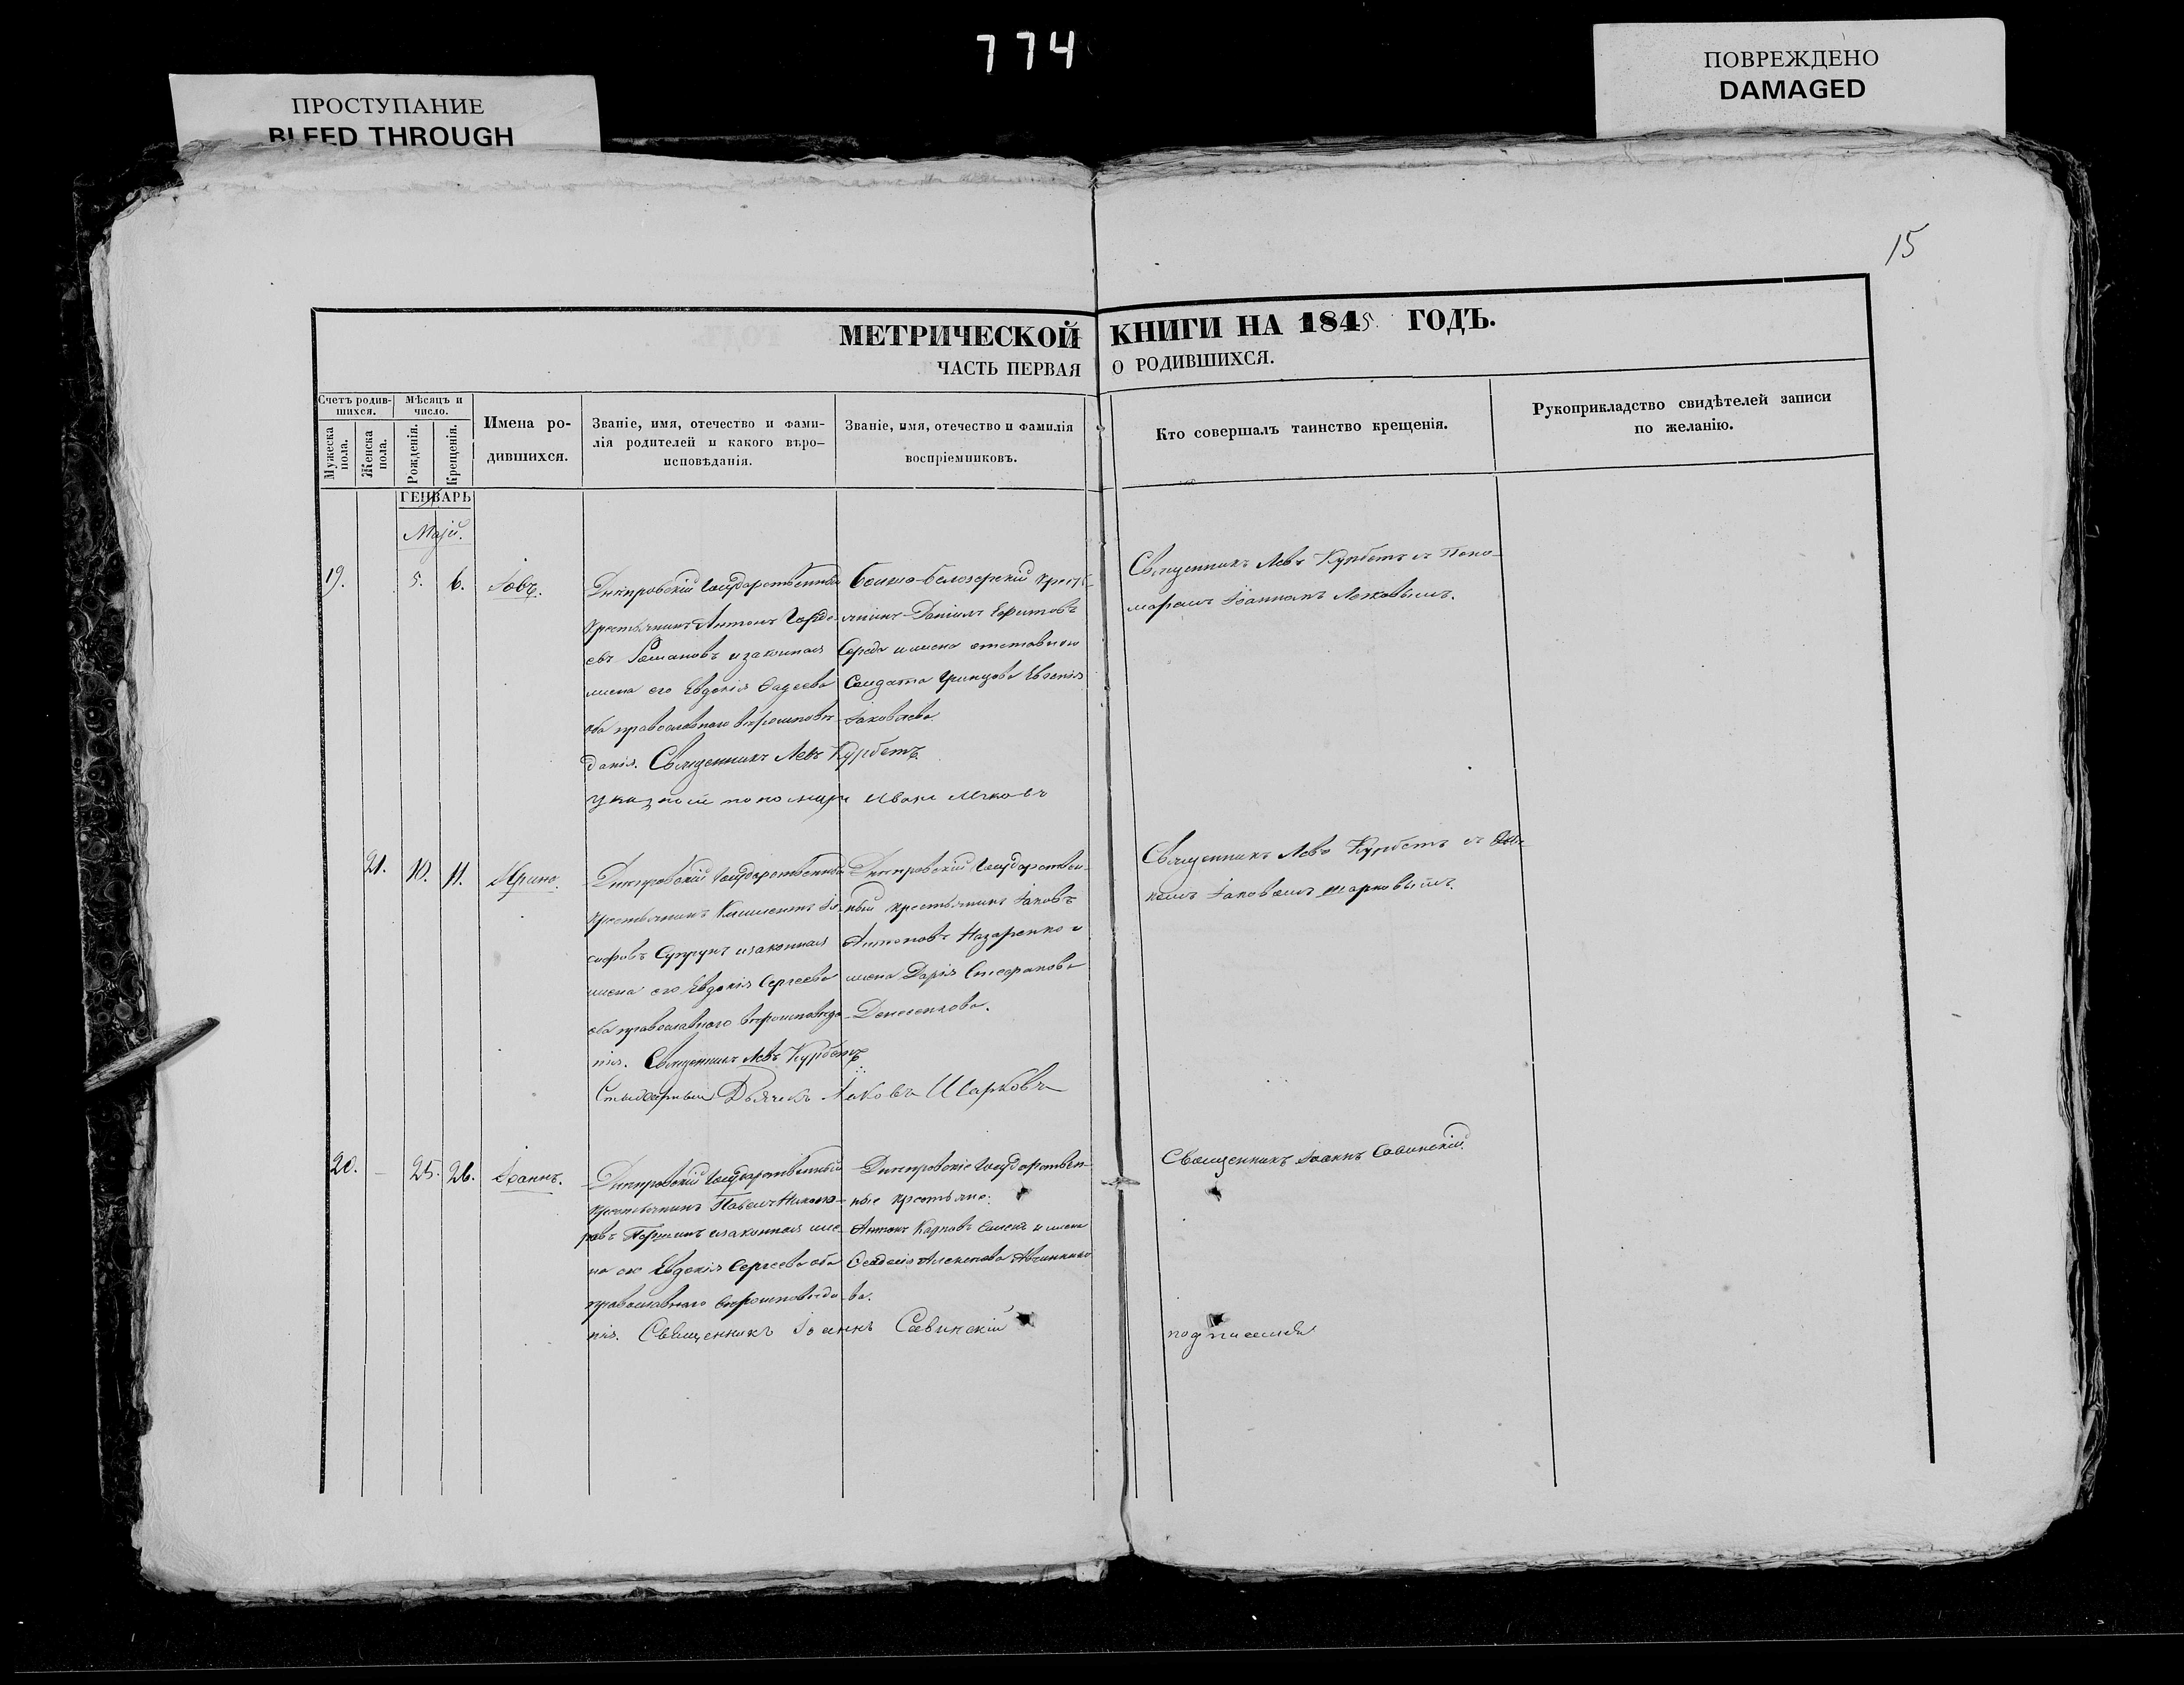 774
ПРОСТУПАНИЕ
BLEED THROUGH
ПОВРЕЖДЕНО
DAMAGED
15
МЕТРИЧЕСКОЙ КНИГИ НА 1845. ГОДЪ.
ЧАСТЬ ПЕРВАЯ О РОДИВШИХСЯ.
Счетъ родив-
шихся.
Мужеска
пола.
Женска
пола.
Мѣсяцъ и
число.
Рожденія.
Крещенія.
Имена ро-
дившихся.
Званіе, имя, отечество и фами-
лія родителей и какого вѣро-
исповѣданія.
Званіе, имя, отечество и фамилія
воспріемниковъ.
Кто совершалъ таинство крещенія.
Рукоприкладство свидѣтелей записи
по желанію.
ГЕНВАРЬ
Маій.
19.
5.
6.
Іовъ.
Днѣпровскій Государственный
крестьянинъ Антонъ
Романовъ и законная
жена его Евдокія Фадеева
оба православнаго вѣроисповѣ-
данія. Священникъ Левъ Курбетъ
указной пономарь Иванъ
Бѣлозерскій крестья-
янинъ Даніилъ Ефимовъ
Середа и жена отставнаго
Солдата Евгенія
Іаковлева.
Священникъ Левъ Курбетъ съ Поно-
маремъ Іоанномъ
21.
10.
11.
Ирина.
Днѣпровскій Государственный
крестьянинъ Климентъ Іо-
сифовъ Супрунъ и законная
жена его Евдокія Сергеева
оба православнаго вѣроисповѣда-
нія. Священникъ Левъ Курбетъ
Стихарный Дьячекъ Іаковъ Шарковъ
Днѣпровскій Государствен-
ный крестьянинъ Іаковъ
Антоновъ Назаренко и
жена Дарія Стефанова
Денисенкова.
Священникъ Левъ Курбетъ съ Дьяч-
комъ Іаковомъ Шарковымъ.
20.
25.
26.
Іоаннъ.
Днѣпровскій Государственный
крестьянинъ Павелъ Никано-
ровъ и законная же-
на его Евдокія Сергеева оба
православнаго вѣроисповѣда-
нія. Священникъ Іоаннъ Савинскій
Днѣпровскіе Государствен-
ные крестьяне:
Антонъ Карповъ и жена
ва.
Священникъ Іоаннъ Савинскій.